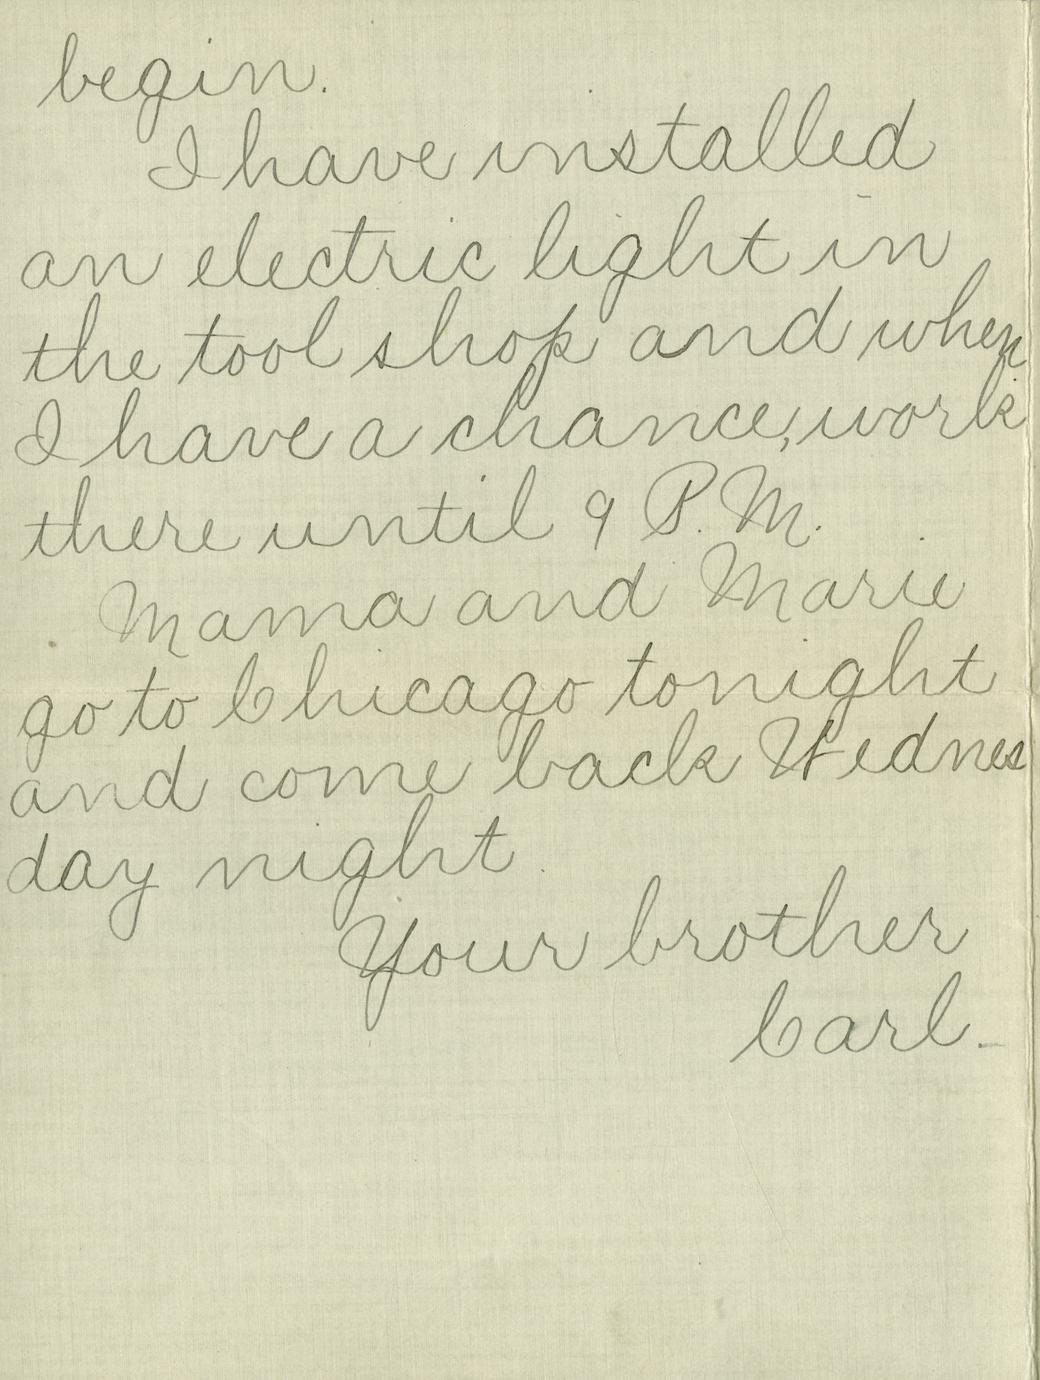 begin.
I have installed
an electric light in
the tool shop and when
I have a chance, work
there until 9 P.M.
Mama and Marie
go to Chicago tonight
and come back Wednes
day night.
Your brother
Carl.